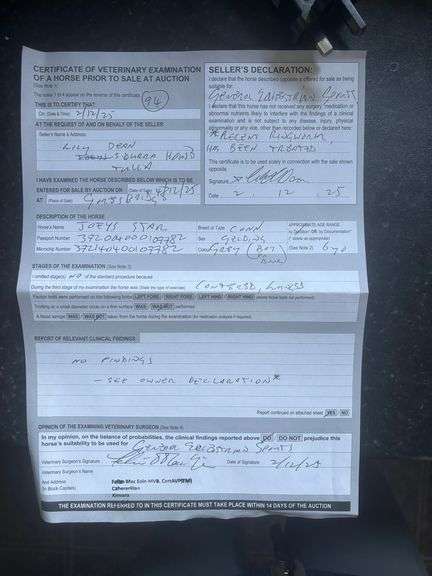 CERTIFICATE OF VETERINARY EXAMINATION
OF A HORSE PRIOR TO SALE AT AUCTION
(See Note 1)
The notes 1 to 4 appear on the reverse of this certificate
94
THIS IS TO CERTIFY THAT
On: (Date & Time) 2/12/25
AT THE REQUEST OF AND ON BEHALF OF THE SELLER
Seller's Name & Address:
LILY DEAN
I HAVE EXAMINED THE HORSE DESCRIBED BELOW WHICH IS TO BE
ENTERED FOR SALE BY AUCTION ON (Date of Sale) /12/25
AT: (Place of Sale)
SELLER'S DECLARATION:
I declare that the horse described opposite is offered for sale as being
suitable for:
GENERAL EQUESTRIAN SPORTS
I declare that this horse has not received any surgery, medication or
abnormal nutrients likely to interfere with the findings of a clinical
examination and is not subject to any disease, injury, physical
abnormality or any vice, other than recorded below or declared here:
*RECENT RINGWORM
HAS BEEN TREATED
The certificate is to be used solely in connection with the sale named
opposite.
Signature
Date 2 12 25
DESCRIPTION OF THE HORSE
Horse's Name JOEYS STAR
Breed or Type CONN
APPROXIMATE AGE RANGE
Passport Number 372004000107982
Sex GELDING
Microchip Number
Colour GREY
(See Note 2) 6yo
STAGES OF THE EXAMINATION (See Note 3)
I omitted stage(s) NO of the standard procedure because
During the third stage of my examination the horse was: (State the type of exercise)
Flexion tests were performed on the following limbs LEFT FORE RIGHT FORE LEFT HIND RIGHT HIND
Trotting on a small diameter circle on a firm surface WAS WAS NOT performed
A blood sample WAS WAS NOT taken from the horse during the examination (for medication analysis if required).
REPORT OF RELEVANT CLINICAL FINDINGS
NO FINDINGS
- SEE OWNER DECLARATION*
Report continued on attached sheet YES NO
OPINION OF THE EXAMINING VETERINARY SURGEON (See Note 4)
In my opinion, on the balance of probabilities, the clinical findings reported above DO DO NOT prejudice this
horse's suitability to be used for GENERAL EQUESTRIAN SPORTS
Veterinary Surgeon's Signature
Date of Signature 2/12/25
Veterinary Surgeon's Name
And Address
In Block Capitals
Kinvara
THE EXAMINATION REFERRED TO IN THIS CERTIFICATE MUST TAKE PLACE WITHIN 14 DAYS OF THE AUCTION